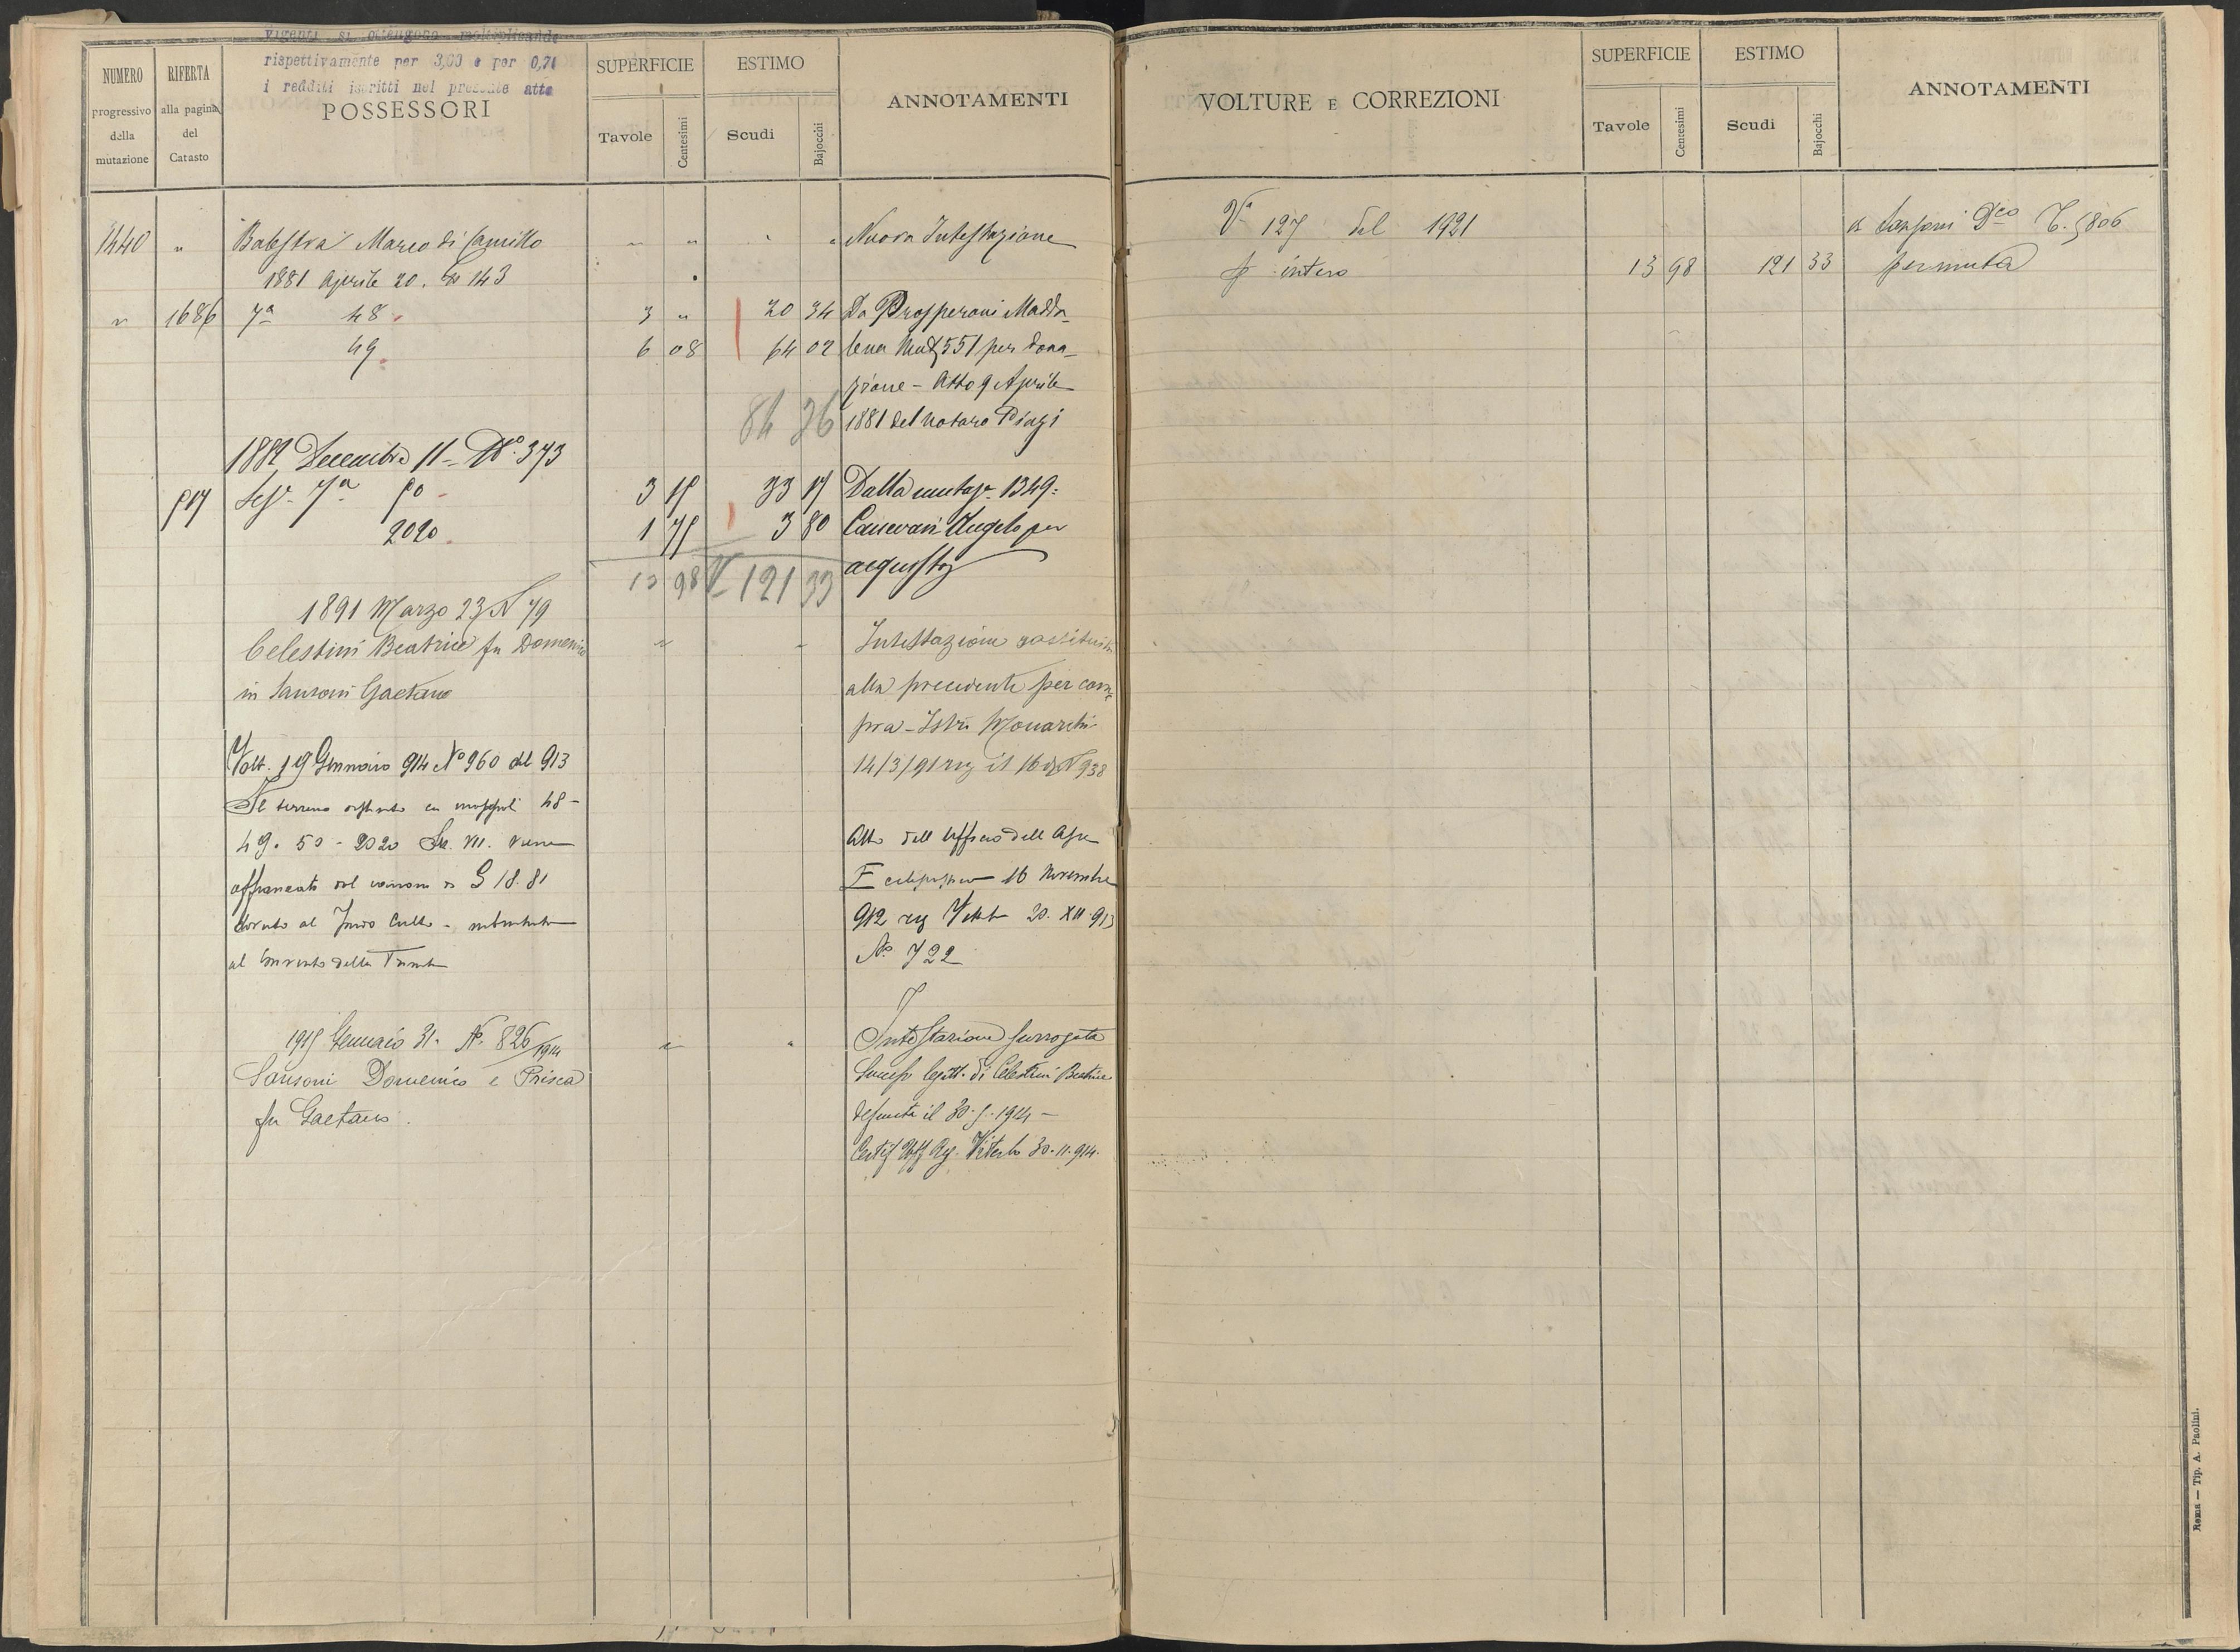 vigenti si ottengono moltiplicando
rispettivamente per 3,00 e per 0,71
i redditi iscritti nel presente atto
NUMERO progressivo della mutazione
RIFERTA alla pagina del Catasto
POSSESSORI
SUPERFICIE
Tavole Centesimi
ESTIMO
Scudi Bajocchi
ANNOTAMENTI
1440 " Balestra Marco di Camillo " " " " Nuova Intestazione
1881 Aprile 20. No 143
" 1686 7a 48. 3 " 20 34 Da Prosperoni Madda-
49. 6 08 64 02 lena Mut 551 per dona-
zione - Atto 9 Aprile
84 36 1881 del notaro Pinzi
1882 Decembre 11 - No. 373
517 Sez. 7a 50 - 3 15 33 17 Dalla mutaz. 1349:
2020. 1 75 3 80 Canevari Angelo per
13 98 121 33 acquisto
1891 Marzo 23 N 79
Celestini Beatrice fu Domenico " " Intestazione sostituita
in Sansoni Gaetano alla precedente per com-
pra - Istr. Monarchi
Volt. 19 Gennaio 914 No 960 del 913 14/3/91 reg il 16 d N 938
Il terreno distinto coi mappali 48 -
49. 50 - 2020 Se. VII. viene Atto dell Ufficio dell
affrancato dal canone di 18.81 16 Novembre
dovuto al Fondo Culto - 912 reg Viterbo 20. XII. 913
al Convento della No. 722
1915 Gennaio 31. No. 826/1914 " " Intestazione surrogata
Sansoni Domenico e Prisca Success legitt. di Celestini Beatrice
fu Gaetano. defunta il 30.5.1914 -
Certif Uff Reg. Viterbo 30.11.914.
VOLTURE E CORREZIONI
SUPERFICIE
Tavole Centesimi
ESTIMO
Scudi Bajocchi
ANNOTAMENTI
Va 127 del 1921 a Sansoni Dco T. 5806
p intero 13 98 121 33 permuta
Roma — Tip. A. Paolini.